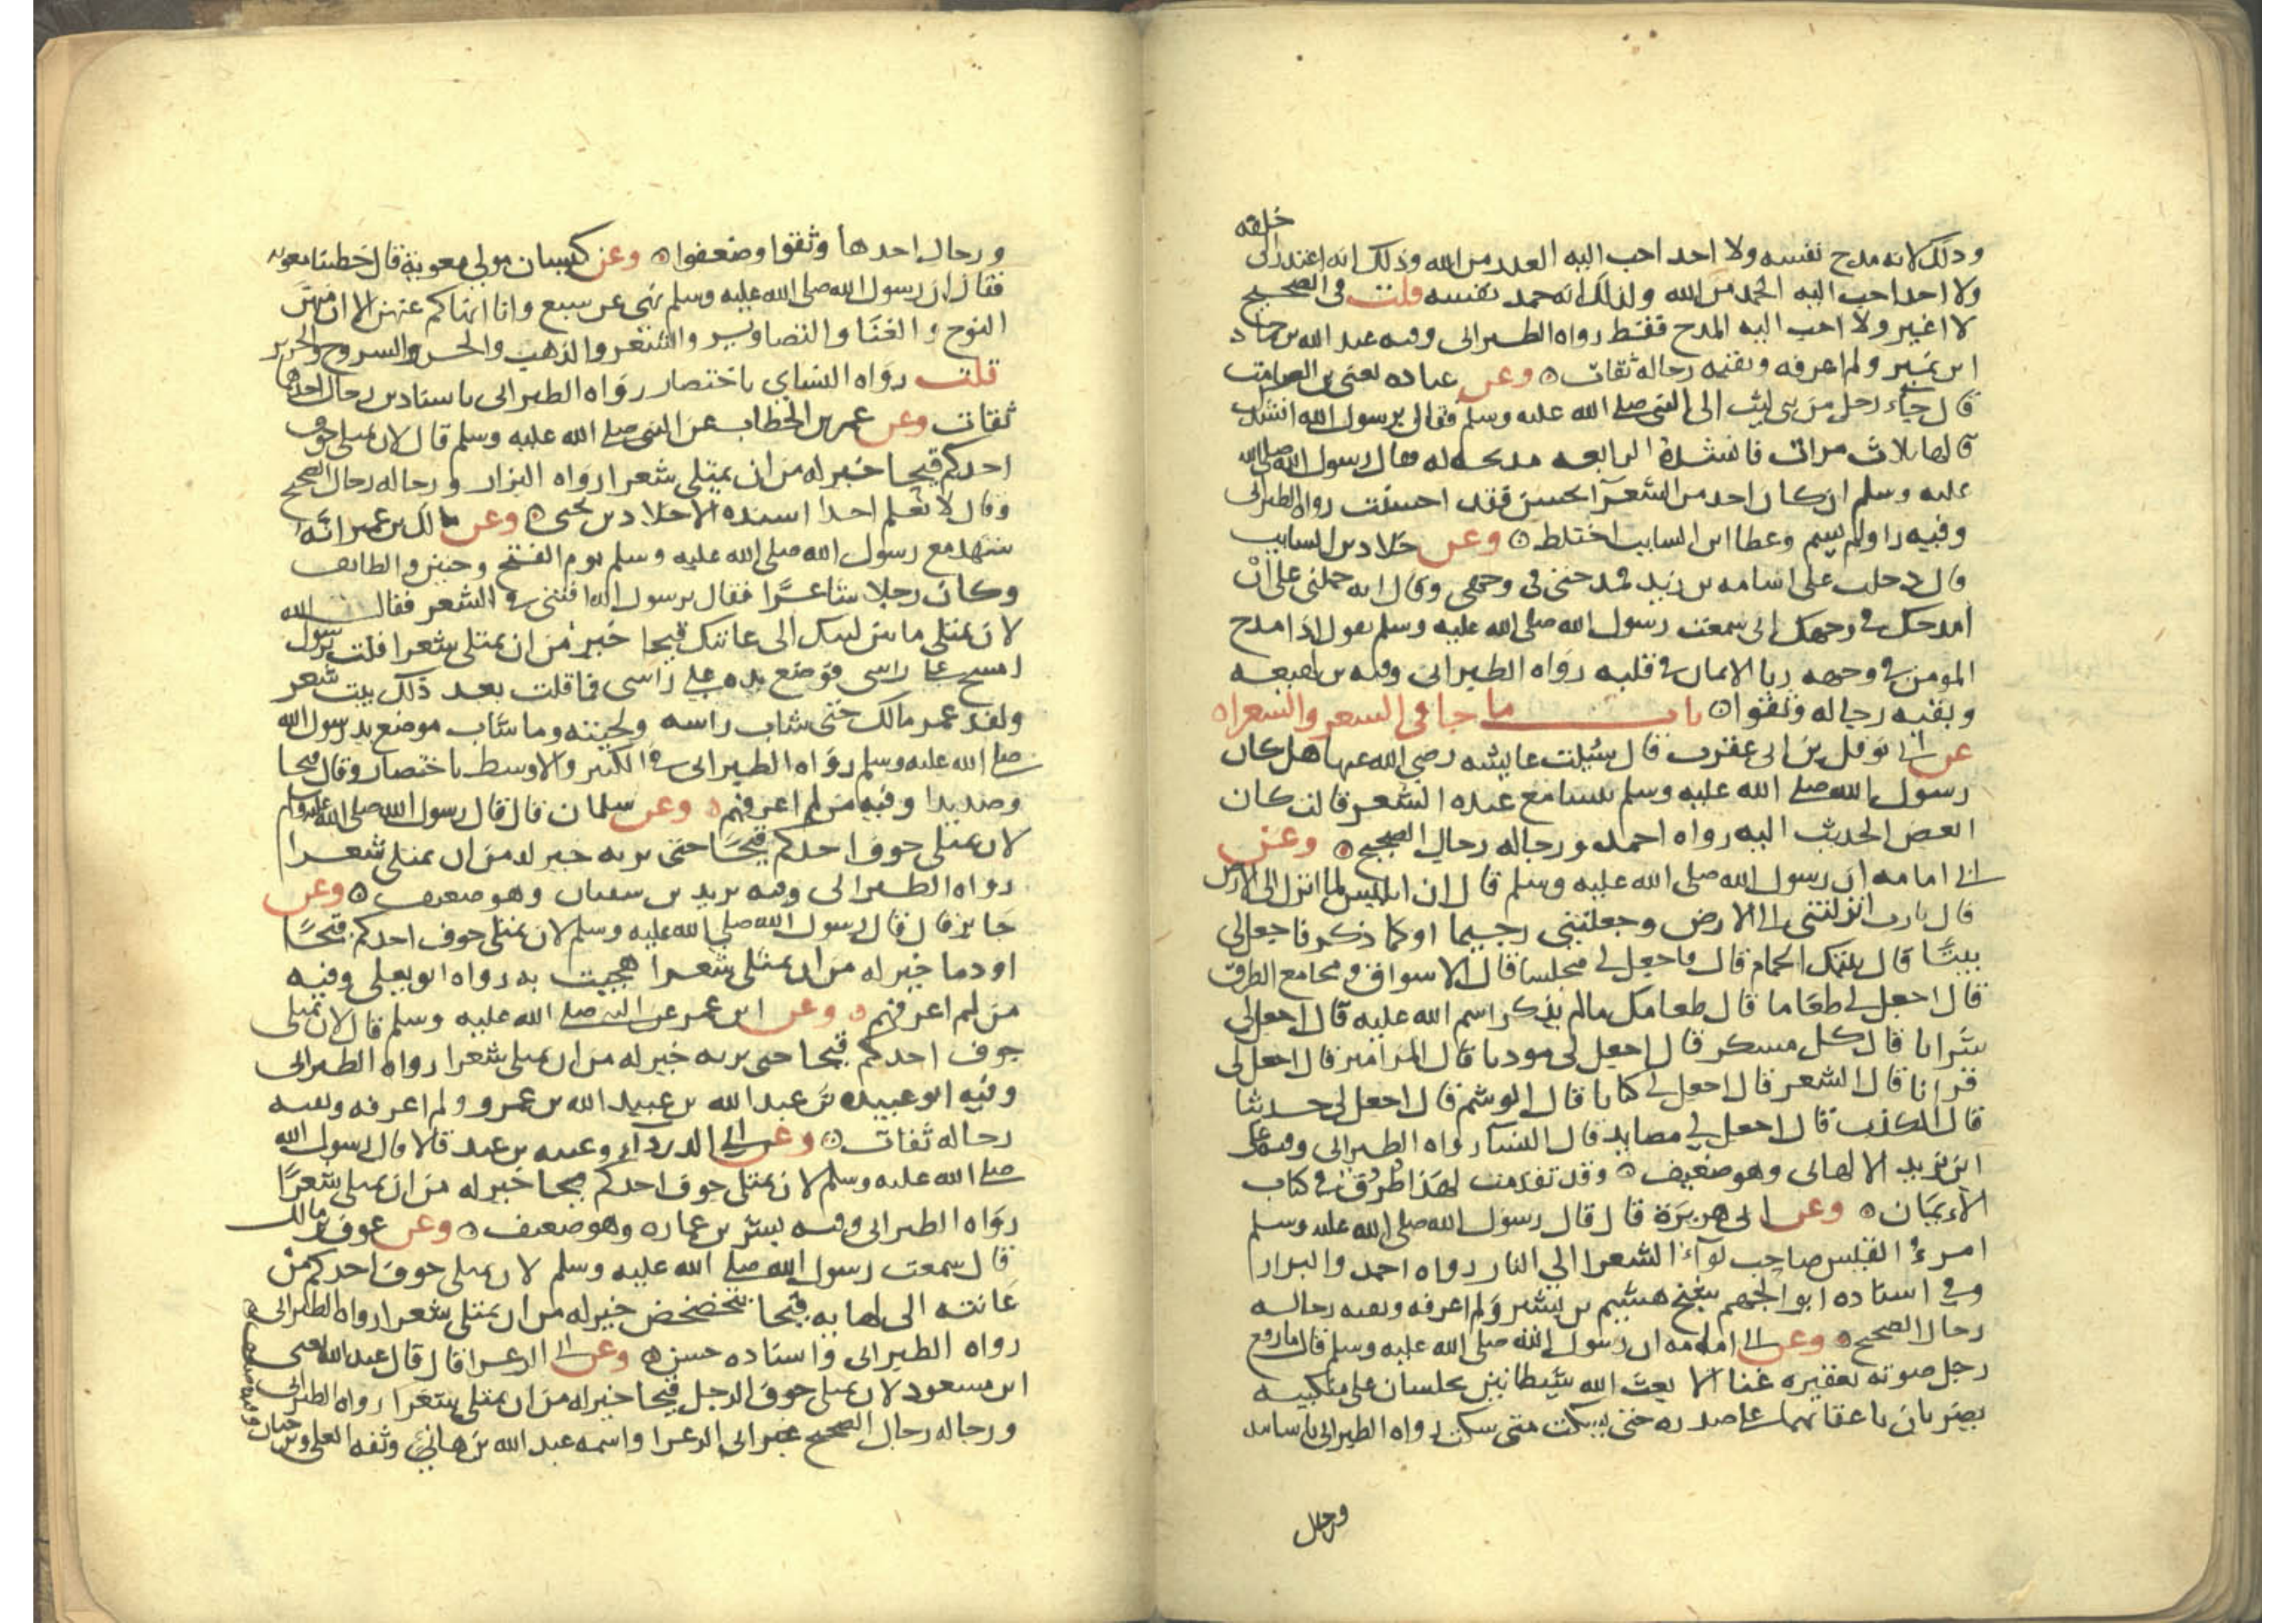 خلقه
وذلك لانه مدح نفسه ولا احد احب اليه العذر من الله وذلك انه اعتذر الى
ولا احد احب اليه الحمد من الله ولذلك انه حمد نفسه قلت في الصحيح
لا اغير ولا احب اليه المدح فقط رواه الطبراني وفيه عبد الله بن حماد
ابن نمير ولم اعرفه وبقيه رجاله ثقات وعن عباده يعني بن الصامت
قال جاء رجل من بني ليث الى النبي صلى الله عليه وسلم فقال يرسول الله انشدك
قالها ثلاث مرات فانشده الرابعه مدحه له فقال رسول الله صلى الله
عليه وسلم ان كان احد من الشعرآ يحسن فقد احسنت رواه الطبراني
وفيه راو لم يسم وعطا ابن السايب اختلط وعن خلاد بن السايب
قال دخلت على اسامه بن زيد فمدحني في وجهي وقال انه حملني على ان
امدحك في وجهك اني سمعت رسول الله صلى الله عليه وسلم يقول اذا مدح
المومن في وجهه ربا الايمان في قلبه رواه الطبراني وفيه بن لهيعه
وبقيه رجاله وثقوا باب ما جا في الشعر والشعراه
عن ابي نوفل بن ابي عقرب قال سيلت عايشه رضي الله عنها هل كان
رسول الله صلى الله عليه وسلم يتسامع عنده الشعر قالت كان
ابغض الحديث اليه رواه احمد ورجاله رجال الصحيح وعن
ابي امامه ان رسول الله صلى الله عليه وسلم قال ان ابليس لما انزل الى الارض
قال يارب انزلتني الى الارض وجعلتني رجيما او كما ذكر فاجعل لي
بيتا قال بيتك الحمام قال فاجعل لي مجلسا قال الاسواق ومجامع الطرق
قال اجعل لي طعاما قال طعامك مالم يذكر اسم الله عليه قال اجعل لي
شرابا قال كل مسكر قال اجعل لي موذنا قال المزامير قال اجعل لي
قرانا قال الشعر قال اجعل لي كتابا قال الوشم قال اجعل لي حديثا
قال الكذب قال اجعل لي مصايد قال النسآ رواه الطبراني وفيه على
ابن يزيد الالهاني وهو ضعيف وقد تقدمت لهذا طرق في كتاب
الايمان وعن ابي هريرة قال قال رسول الله صلى الله عليه وسلم
امرؤ القيس صاحب لوآء الشعرا الي النار رواه احمد والبزار
وفي اسناده ابو الجهم شيخ هشيم بن بشير ولم اعرفه وبقيه رجاله
رجال الصحيح وعن ابي امامه ان رسول الله صلى الله عليه وسلم قال ما رفع
رجل صوته بعقيره غنا الا بعث الله شيطانين يجلسان على منكبيه
يضربان باعقابهما على صدره حتى يسكت متى سكت رواه الطبراني باسانيد
ورجال
ورجال احدها وثقوا وضعفوا وعن كيسان مولي معوية قال خطبنا معويه
فقال ان رسول الله صلى الله عليه وسلم نهى عن سبع وانا انهاكم عنهن الا ان منهن
النوح والغنا والتصاوير والشعر والذهب والخز والسروج والحرير
قلت رواه النساي باختصار رواه الطبراني باسنادين رجال احدهما
ثقات وعن عمر بن الخطاب عن النبي صلى الله عليه وسلم قال لان يمتلي جوف
احدكم قيحا خير له من ان يمتلي شعرا رواه البزار ورجاله رجال الصحيح
وقال لا نعلم احدا اسنده الا خلاد بن يحيى وعن مالك بن عمير انه
شهد مع رسول الله صلى الله عليه وسلم يوم الفتح وحنين والطايف
وكان رجلا شاعرا فقال يرسول الله افتني في الشعر فقال
لان يمتلي ما بين لبتك الى عاتنك قيحا خير من ان يمتلي شعرا قلت يرسول الله
امسح على راسي فوضع يده على راسي فما قلت بعد ذلك بيت شعر
ولقد عمر مالك حتى شاب راسه ولحيته وما شاب موضع يد رسول الله
صلى الله عليه وسلم رواه الطبراني في الكبير والاوسط باختصار وقال قيحا
وصديدا وفيه من لم اعرفهم وعن سلمان قال قال رسول الله صلى الله عليه وسلم
لان يمتلي جوف احدكم قيحا حتى يريه خير له من ان يمتلي شعرا
رواه الطبراني وفيه يزيد بن سفيان وهو ضعيف وعن
جابر قال قال رسول الله صلى الله عليه وسلم لان يمتلي جوف احدكم قيحا
او دما خير له من ان يمتلي شعرا هجيت به رواه ابو يعلى وفيه
من لم اعرفهم وعن ابن عمر عن النبي صلى الله عليه وسلم قال لان يمتلي
جوف احدكم قيحا حتى يريه خير له من ان يمتلي شعرا رواه الطبراني
وفيه ابو عبيده بن عبد الله بن عبيد الله بن عمر ولم اعرفه وبقيه
رجاله ثقات وعن ابي الدردآء وعتبه بن عبد قالا قال رسول الله
صلى الله عليه وسلم لان يمتلي جوف احدكم قيحا خير له من ان يمتلي شعرا
رواه الطبراني وفيه بشر بن عماره وهو ضعيف وعن عوف بن مالك
قال سمعت رسول الله صلى الله عليه وسلم لان يمتلي جوف احدكم من
عانته الى لهاته قيحا يتخضخض خير له من ان يمتلي شعرا رواه الطبراني
رواه الطبراني واسناده حسن وعن ابي الزعرا قال قال عبد الله يعني
ابن مسعود لان يمتلى جوف الرجل قيحا خير له من ان يمتلي شعرا رواه الطبراني
ورجاله رجال الصحيح غير ابي الزعرا واسمه عبد الله بن هاني وثقه العجلي وبن حبان